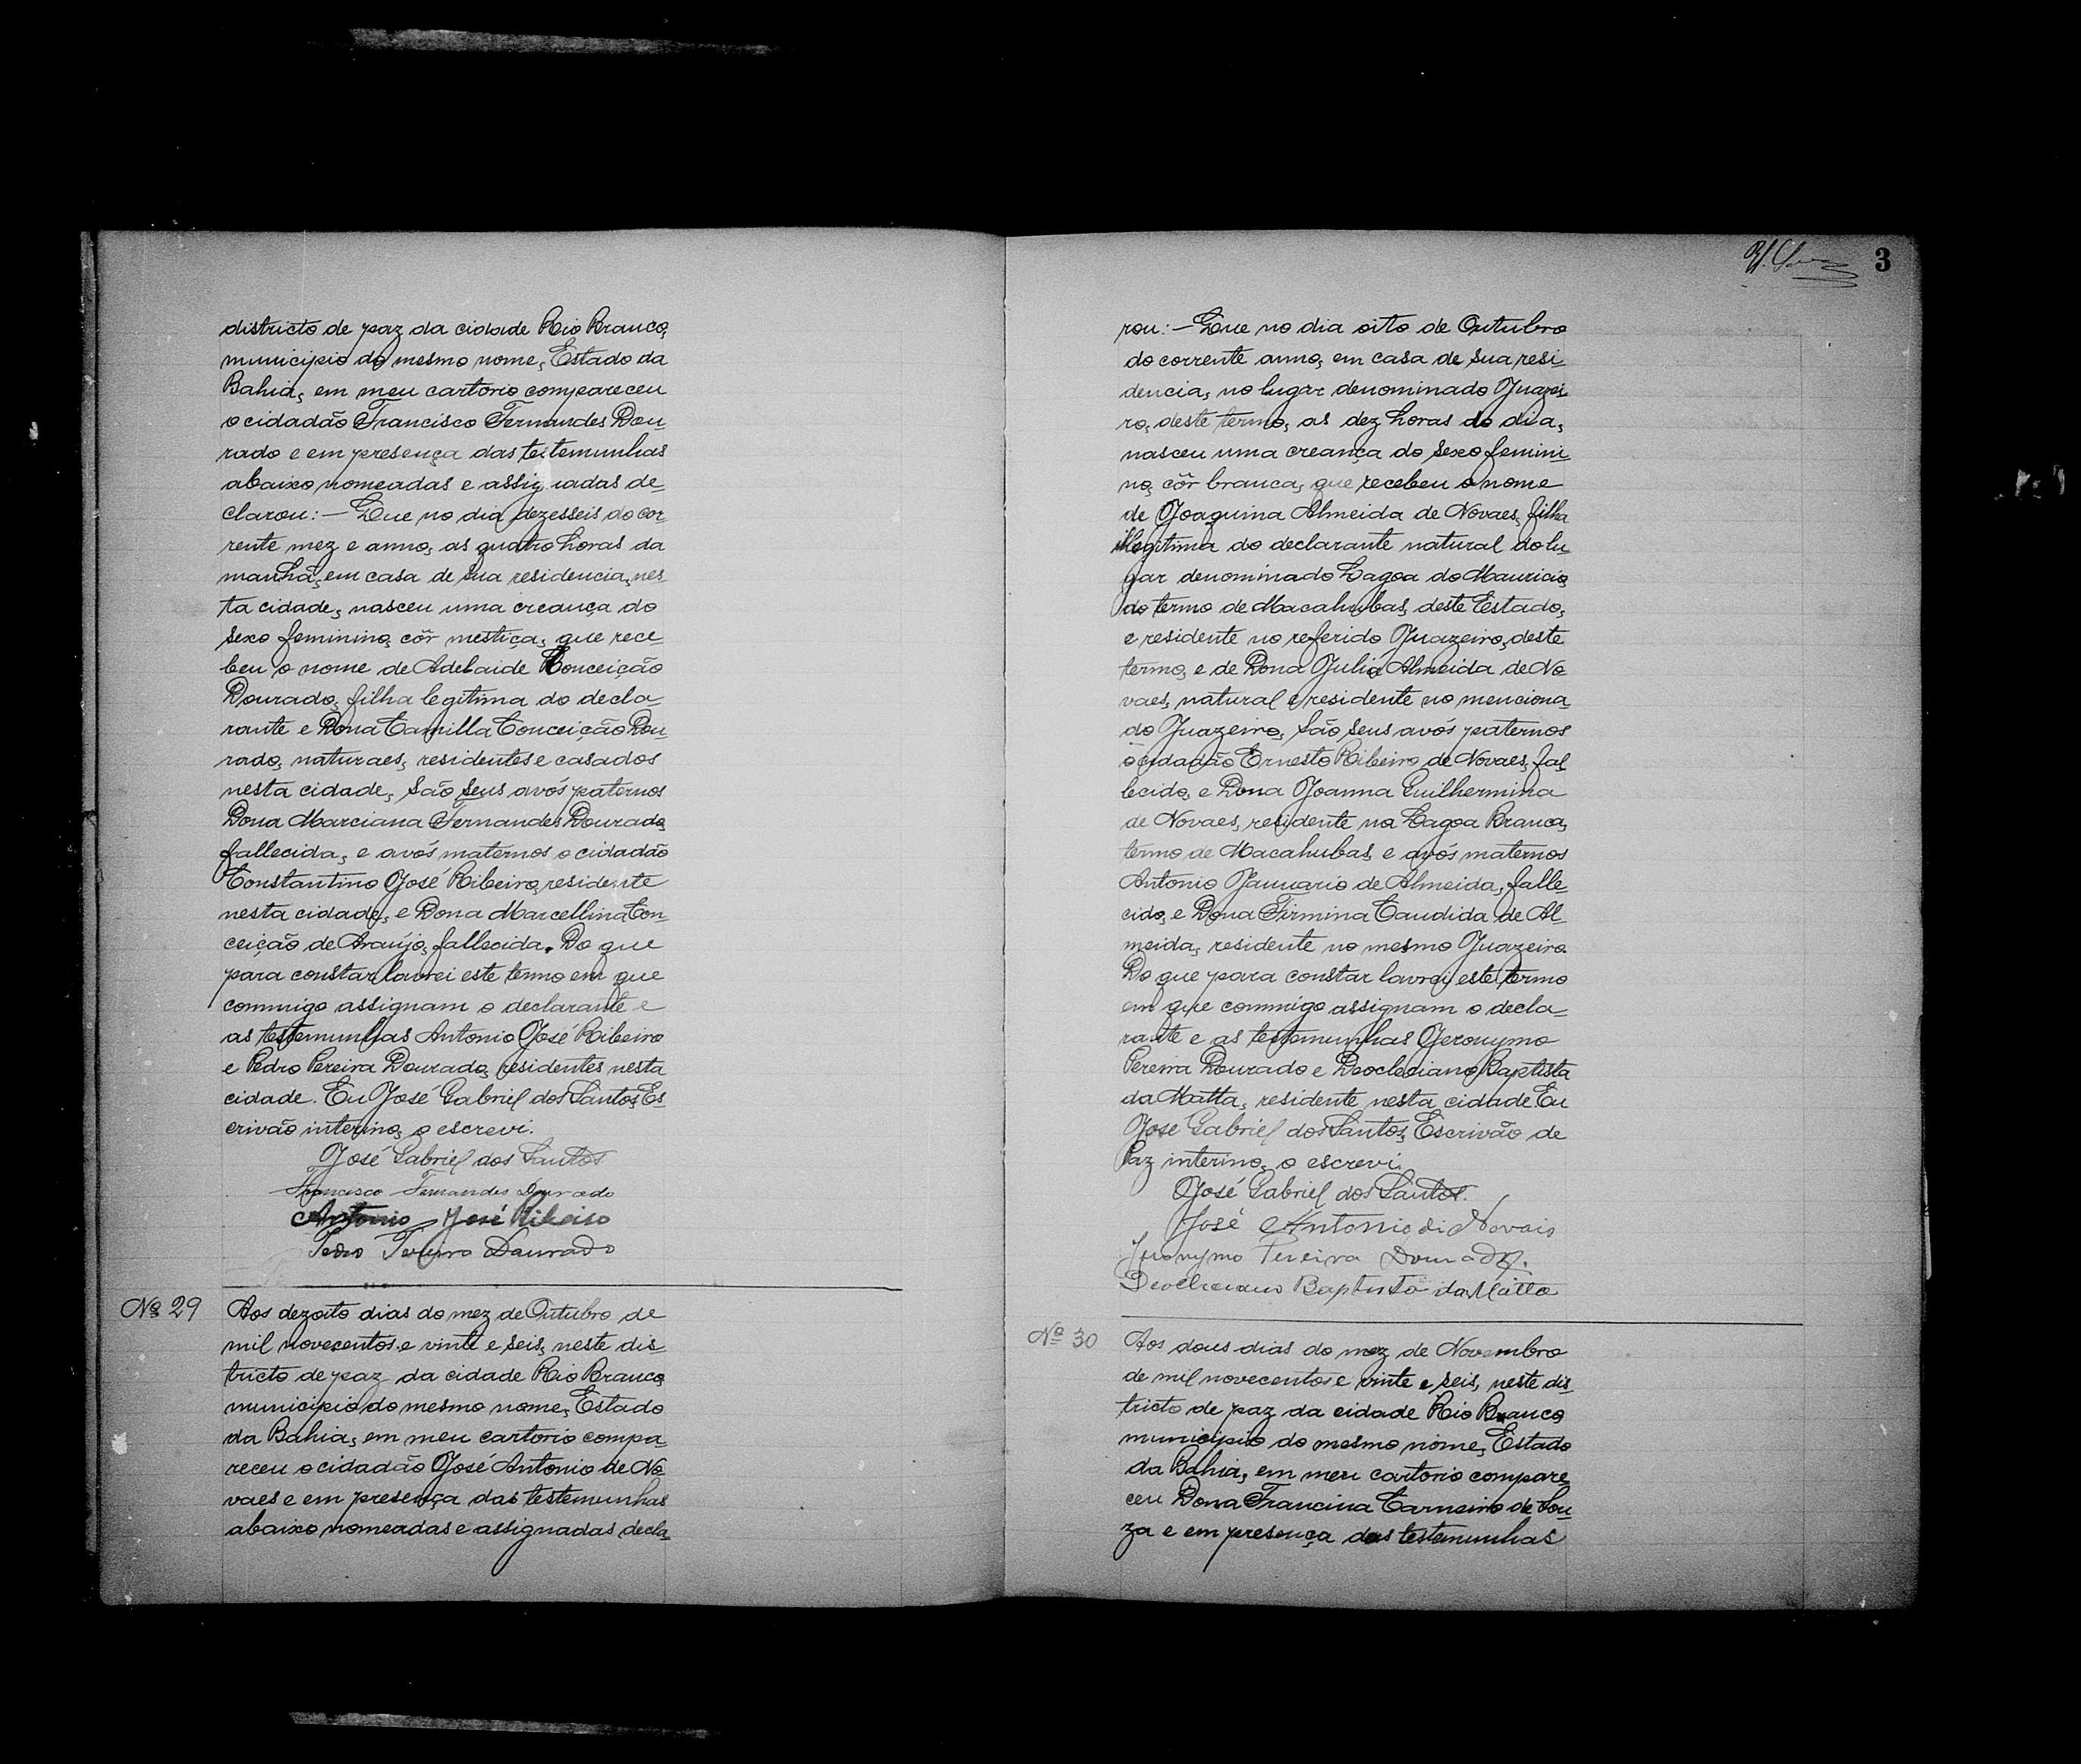 districto de paz da cidade Rio Branco,
municipio do mesmo nome, Estado da
Bahia, em meu cartorio compareceu
o cidadão Francisco Fernandes Dou-
rado e em presença das testemunhas
abaixo nomeadas e assignadas de-
clarou:—Que no dia dezesseis do cor
rente mez e anno, as quatro horas da
manhã, em casa de sua residencia, nes
ta cidade, nasceu uma creança do
sexo feminino, côr mestiça, que rece-
beu o nome de Adelaide Conceição
Dourado, filha legitima do decla-
rante e Dona Camilla Conceição Dou-
rado, naturaes, residentes e casados
nesta cidade, são seus avós paternos
Dona Marciana Fernandes Dourado,
fallecida, e avós maternos o cidadão
Constantino José Ribeiro, residente
nesta cidade, e Dona Marcellina Con-
ceição de Araújo, fallecida. Do que
para constar lavrei este termo em que
commigo assignam o declarante e
as testemunhas Antonio José Ribeiro
e Pedro Pereira Dourado, residentes nesta
cidade. Eu José Gabriel dos Santos, Es-
crivão interino, o escrevi.
José Gabriel dos Santos
Francisco Fernandes Dourado
Antonio José Ribeiro
Pedro Pereira Dourado
Nº 29
Aos dezoito dias do mez de Outubro de
mil novecentos e vinte e seis, neste dis-
tricto de paz da cidade Rio Branco,
municipio do mesmo nome, Estado
da Bahia, em meu cartorio compa-
receu o cidadão José Antonio de No-
vaes e em presença das testemunhas
abaixo nomeadas e assignadas decla-
3
rou:—Que no dia oito de Outubro
do corrente anno, em casa de sua resi-
dencia, no lugar denominado Juazei-
ro, deste termo, as dez horas do dia,
nasceu uma creança do sexo femini-
no, côr branca, que recebeu o nome
de Joaquina Almeida de Novaes, filha
illegitima do declarante natural do lu-
gar denominado Lagoa do Mauricio,
do termo de Macahubas, deste Estado,
e residente no referido Juazeiro, deste
termo, e de Dona Julia Almeida de No-
vaes, natural e residente no menciona-
do Juazeiro, São seus avós paternos
o cidadão Ernesto Ribeiro de Novaes, fal
lecido, e Dona Joanna Guilhermina
de Novaes, residente na Lagoa Branca,
termo de Macahubas, e avós maternos
Antonio Januario de Almeida, falle-
cido, e Dona Firmina Candida de Al-
meida, residente no mesmo Juazeiro.
Do que para constar lavrei este termo
em que commigo assignam o decla-
rante e as testemunhas Jeronymo
Pereira Dourado e Deocleciano Baptista
da Matta, residente nesta cidade. Eu
José Gabriel dos Santos, Escrivão de
Paz interino, o escrevi.
José Gabriel dos Santos.
José Antonio di Novais
Jeronymo Pereira Dourado.
Deocleciano Baptista da Matta
Nº 30
Aos dous dias do mez de Novembro
de mil novecentos e vinte e seis, neste dis-
tricto de paz da cidade Rio Branco,
municipio do mesmo nome, Estado
da Bahia, em meu cartorio compare
ceu Dona Francina Carneiro de Sou-
za e em presença das testemunhas